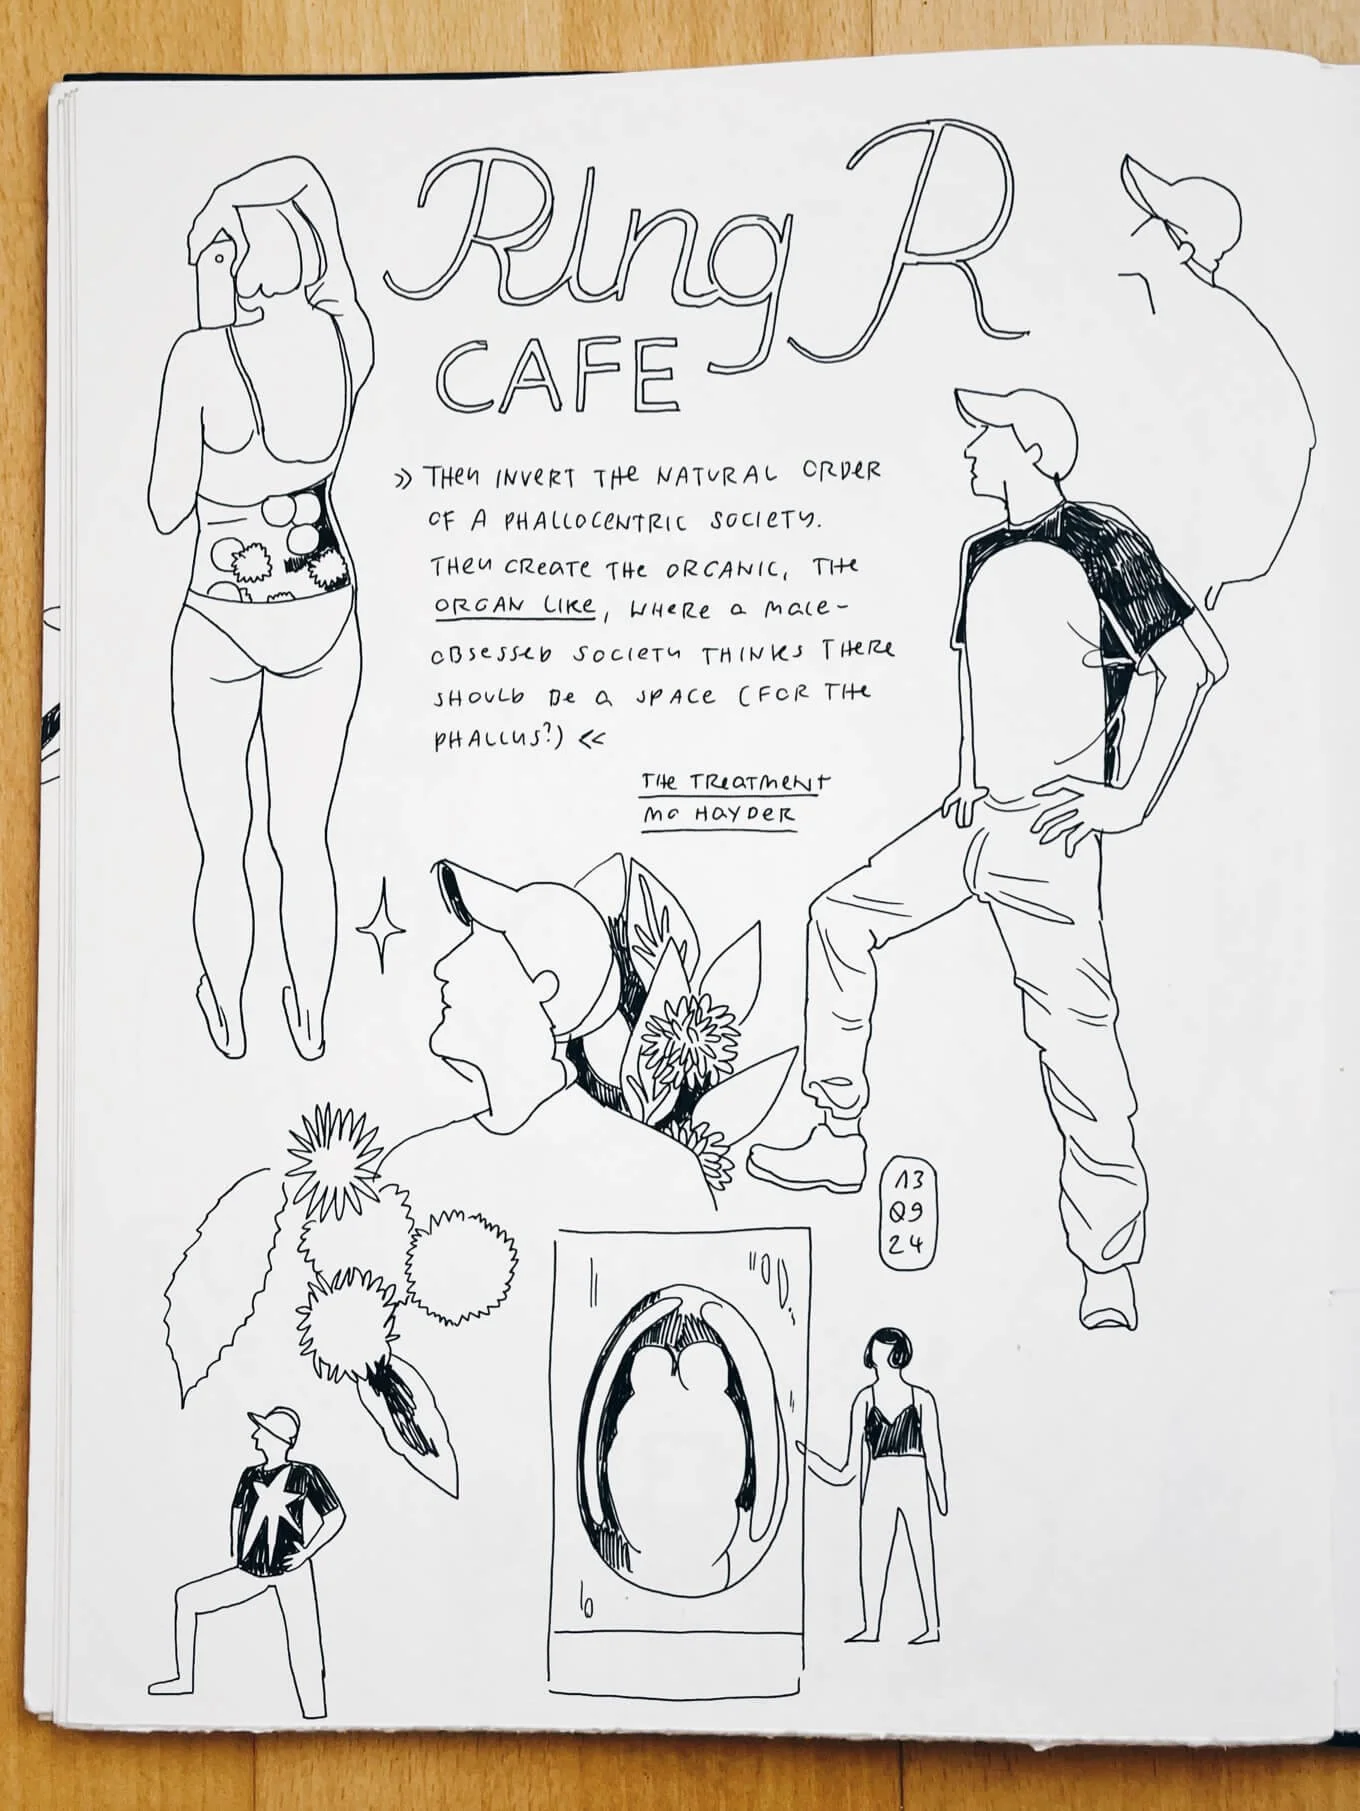 Ring R
CAFE
» THEN INVERT THE NATURAL ORDER
OF A PHALLOCENTRIC SOCIETY.
THEN CREATE THE ORGANIC, THE
ORGAN LIKE, WHERE A MALE-
OBSESSED SOCIETY THINKS THERE
SHOULD BE A SPACE (FOR THE
PHALLUS?) «
THE TREATMENT
MO HAYDER
13
09
24